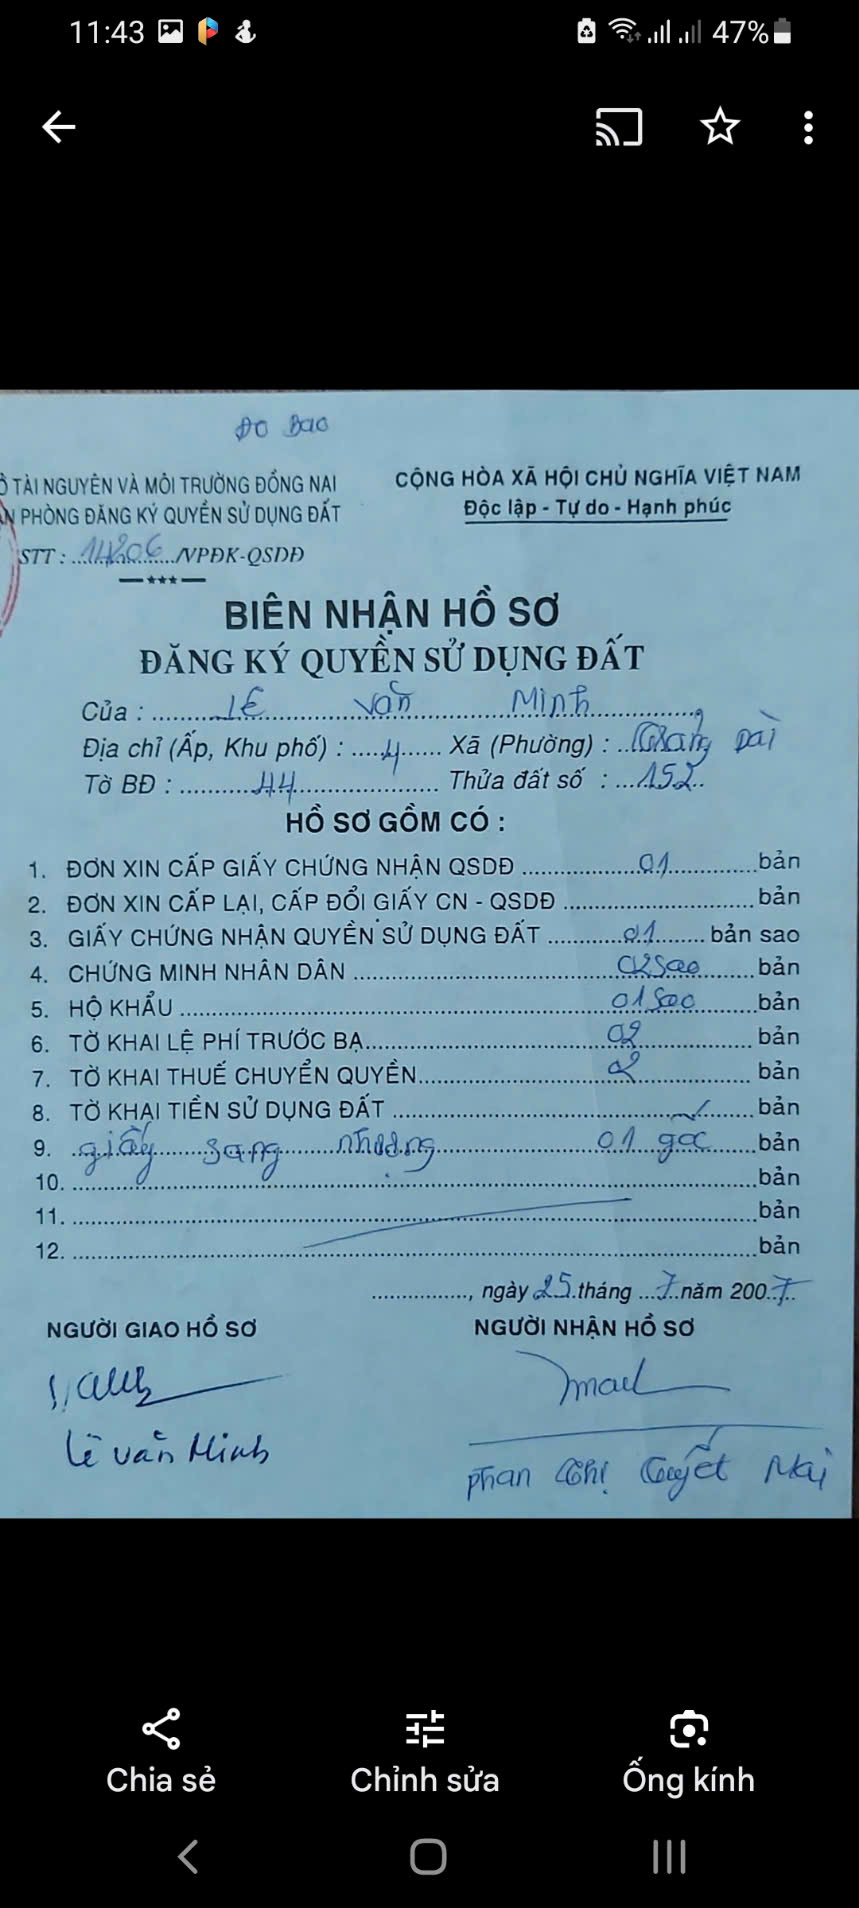 11:43 47%
Đo Bao
Ở TÀI NGUYÊN VÀ MÔI TRƯỜNG ĐỒNG NAI
ĂN PHÒNG ĐĂNG KÝ QUYỀN SỬ DỤNG ĐẤT
STT : 14806 /VPĐK-QSDĐ
***
CỘNG HÒA XÃ HỘI CHỦ NGHĨA VIỆT NAM
Độc lập - Tự do - Hạnh phúc
BIÊN NHẬN HỒ SƠ
ĐĂNG KÝ QUYỀN SỬ DỤNG ĐẤT
Của : Lê Văn Minh
Địa chỉ (Ấp, Khu phố) : 4 Xã (Phường) : Trảng Dài
Tờ BĐ : 44 Thửa đất số : 152
HỒ SƠ GỒM CÓ :
1. ĐƠN XIN CẤP GIẤY CHỨNG NHẬN QSDĐ 01 bản
2. ĐƠN XIN CẤP LẠI, CẤP ĐỔI GIẤY CN - QSDĐ bản
3. GIẤY CHỨNG NHẬN QUYỀN SỬ DỤNG ĐẤT 01 bản sao
4. CHỨNG MINH NHÂN DÂN 02 sao bản
5. HỘ KHẨU 01 sao bản
6. TỜ KHAI LỆ PHÍ TRƯỚC BẠ 02 bản
7. TỜ KHAI THUẾ CHUYỂN QUYỀN 2 bản
8. TỜ KHAI TIỀN SỬ DỤNG ĐẤT bản
9. giấy sang nhượng 01 gốc bản
10. bản
11. bản
12. bản
, ngày 25 tháng 7 năm 2007
NGƯỜI GIAO HỒ SƠ
NGƯỜI NHẬN HỒ SƠ
Lê Văn Minh
Phan Thị Tuyết Mai
Chia sẻ
Chỉnh sửa
Ống kính